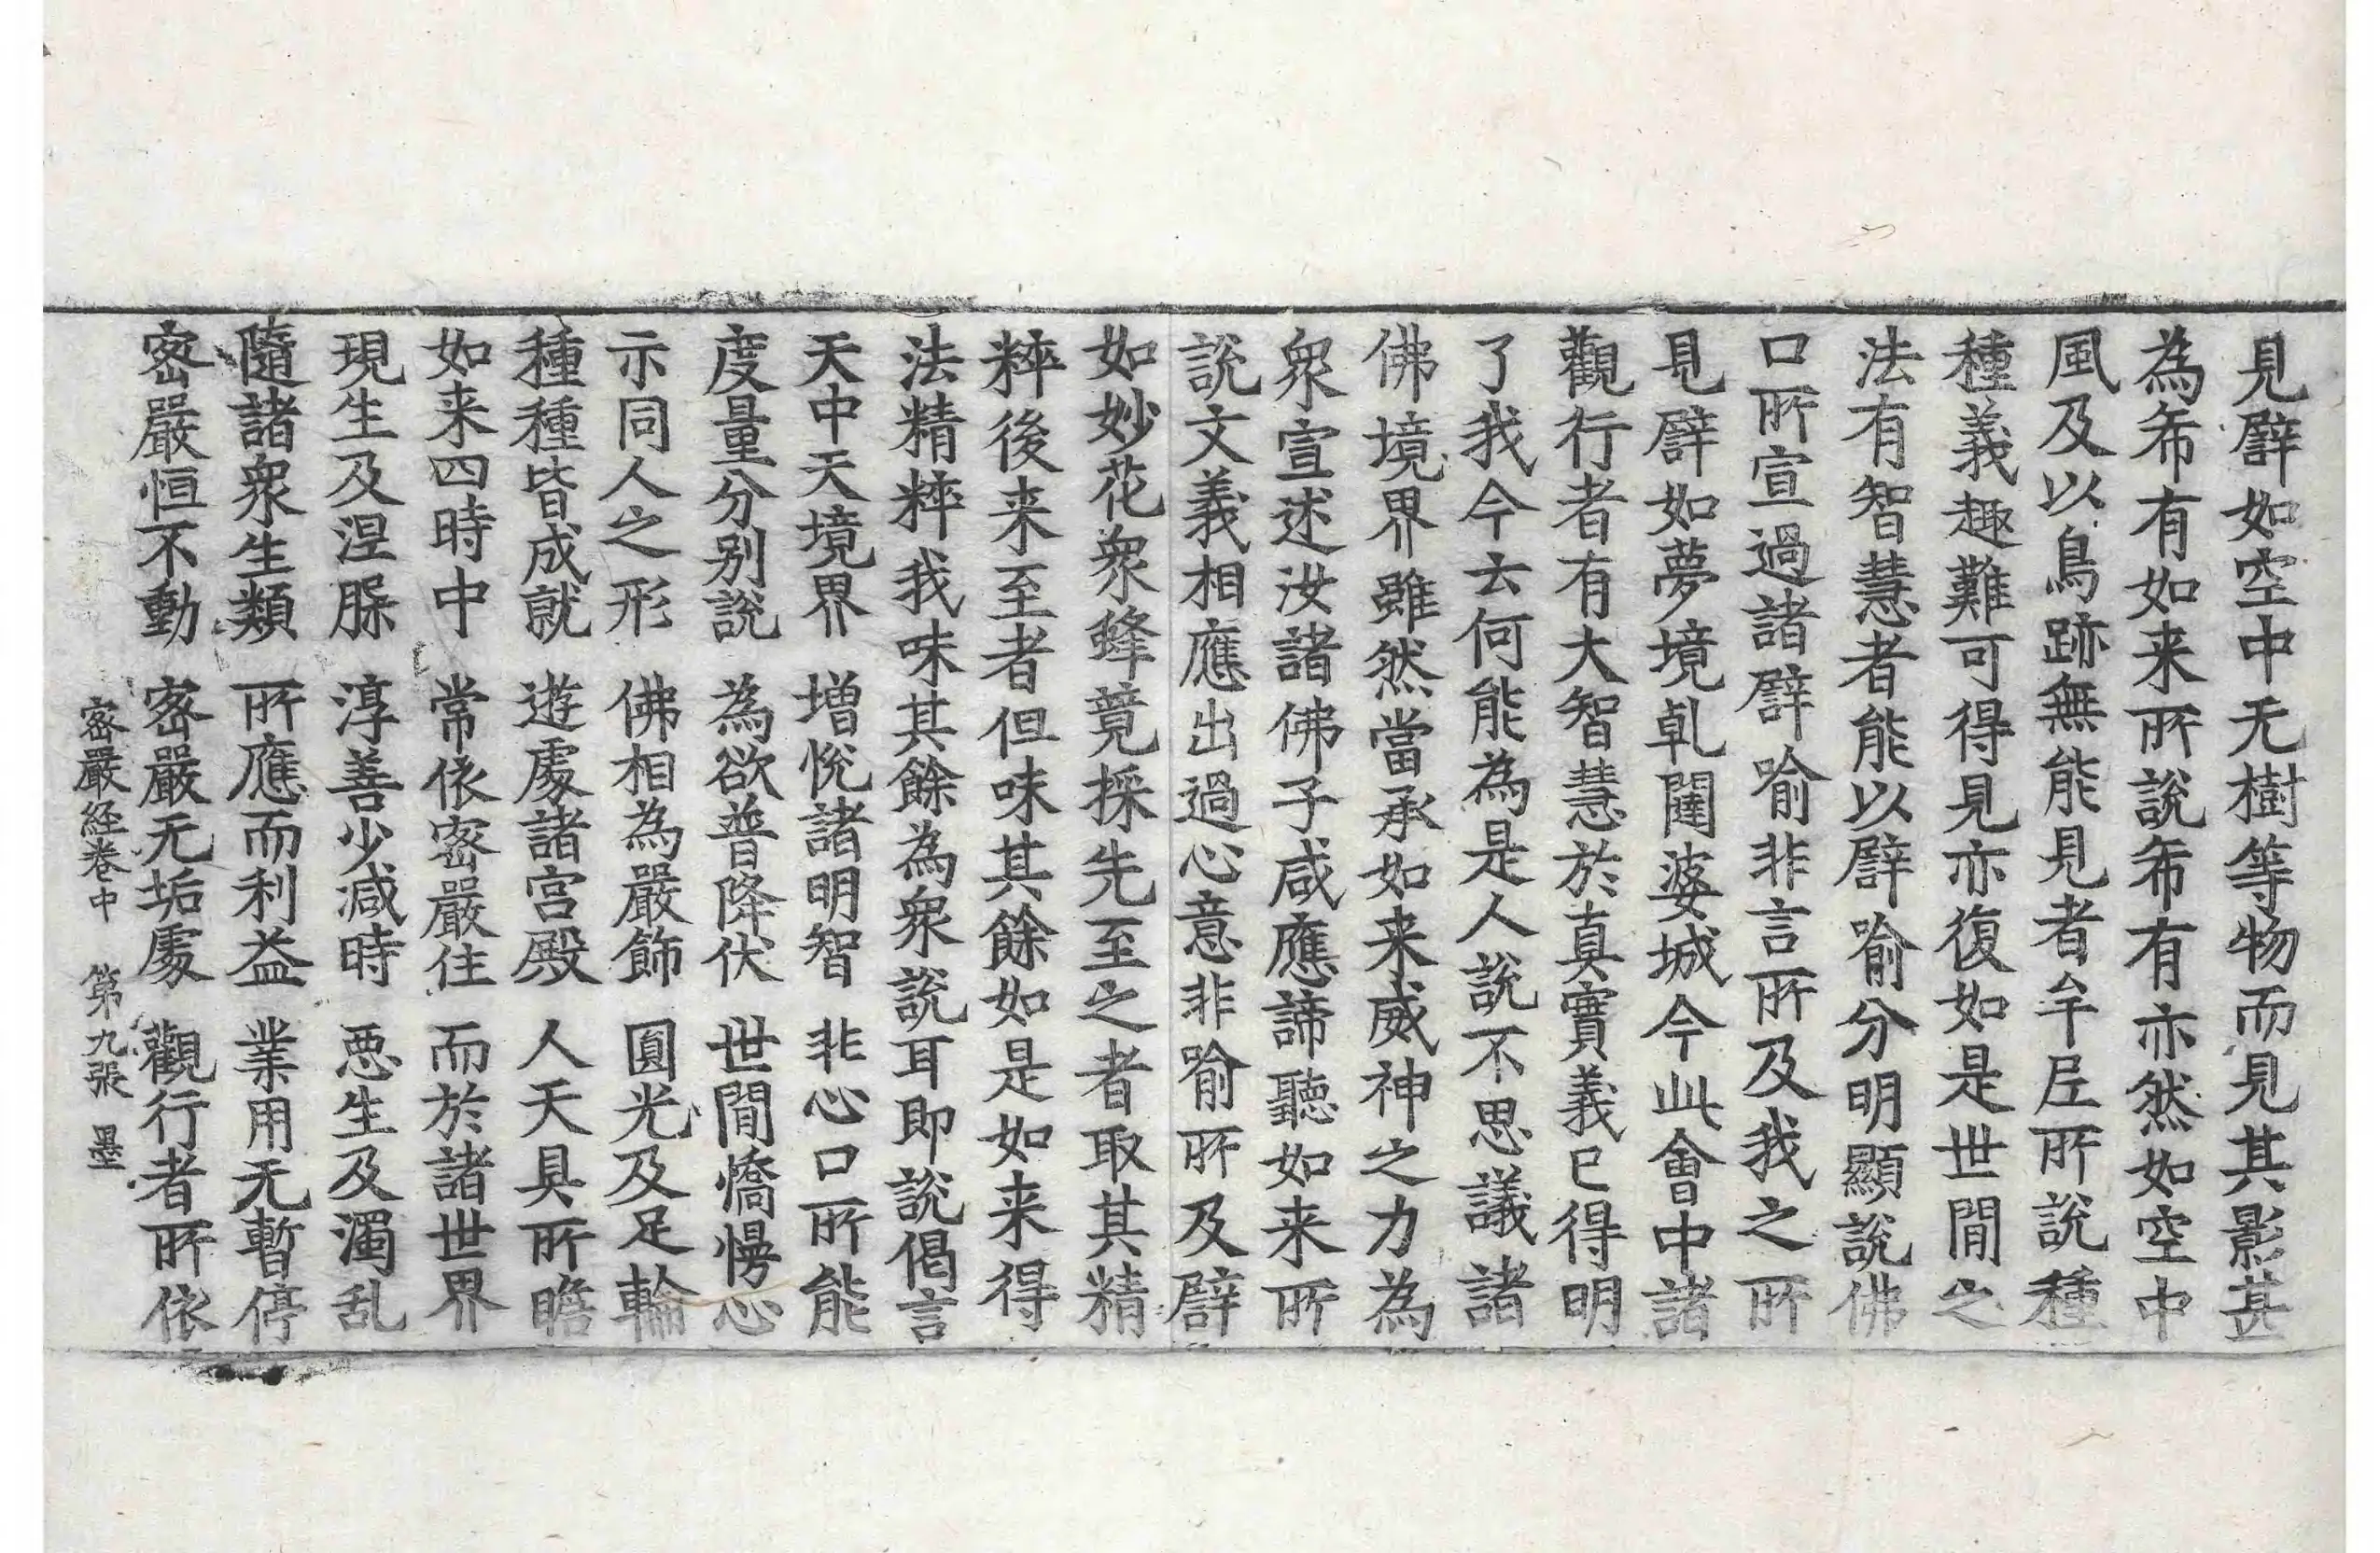 見譬如空中无樹等物而見其影甚
為希有如来所說希有亦然如空中
風及以鳥跡無能見者牟𡰱所說種
種義趣難可得見亦復如是世間之
法有智慧者能以譬喻分明顯說佛
口所宣過諸譬喻非言所及我之所
見譬如夢境乹闥婆城今此會中諸
觀行者有大智慧於真實義已得明
了我今云何能為是人說不思議諸
佛境界雖然當承如来威神之力為
衆宣述汝諸佛子咸應諦聽如来所
說文義相應出過心意非喻所及譬
如妙花衆蜂競採先至之者取其精
粹後来至者但味其餘如是如来得
法精粹我味其餘為衆說耳即說偈言
天中天境界　增悅諸明智　非心口所能
度量分別說　為欲普降伏　世間憍慢心
示同人之形　佛相為嚴飾　圓光及足輪
種種皆成就　遊處諸宮殿　人天具所瞻
如来四時中　常依密嚴住　而於諸世界
現生及涅槃　淳善少減時　惡生及濁乱
隨諸衆生類　所應而利益　業用无暫停
密嚴恒不動　密嚴无垢處　觀行者所依
密嚴経卷中　第九張　墨